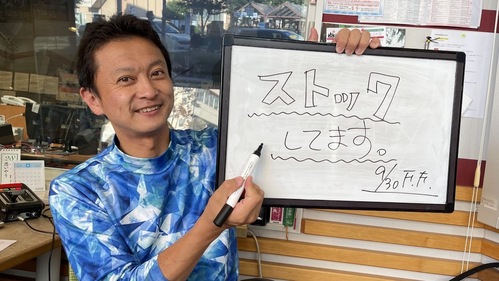 ストック
してます。
9/30 F.F.